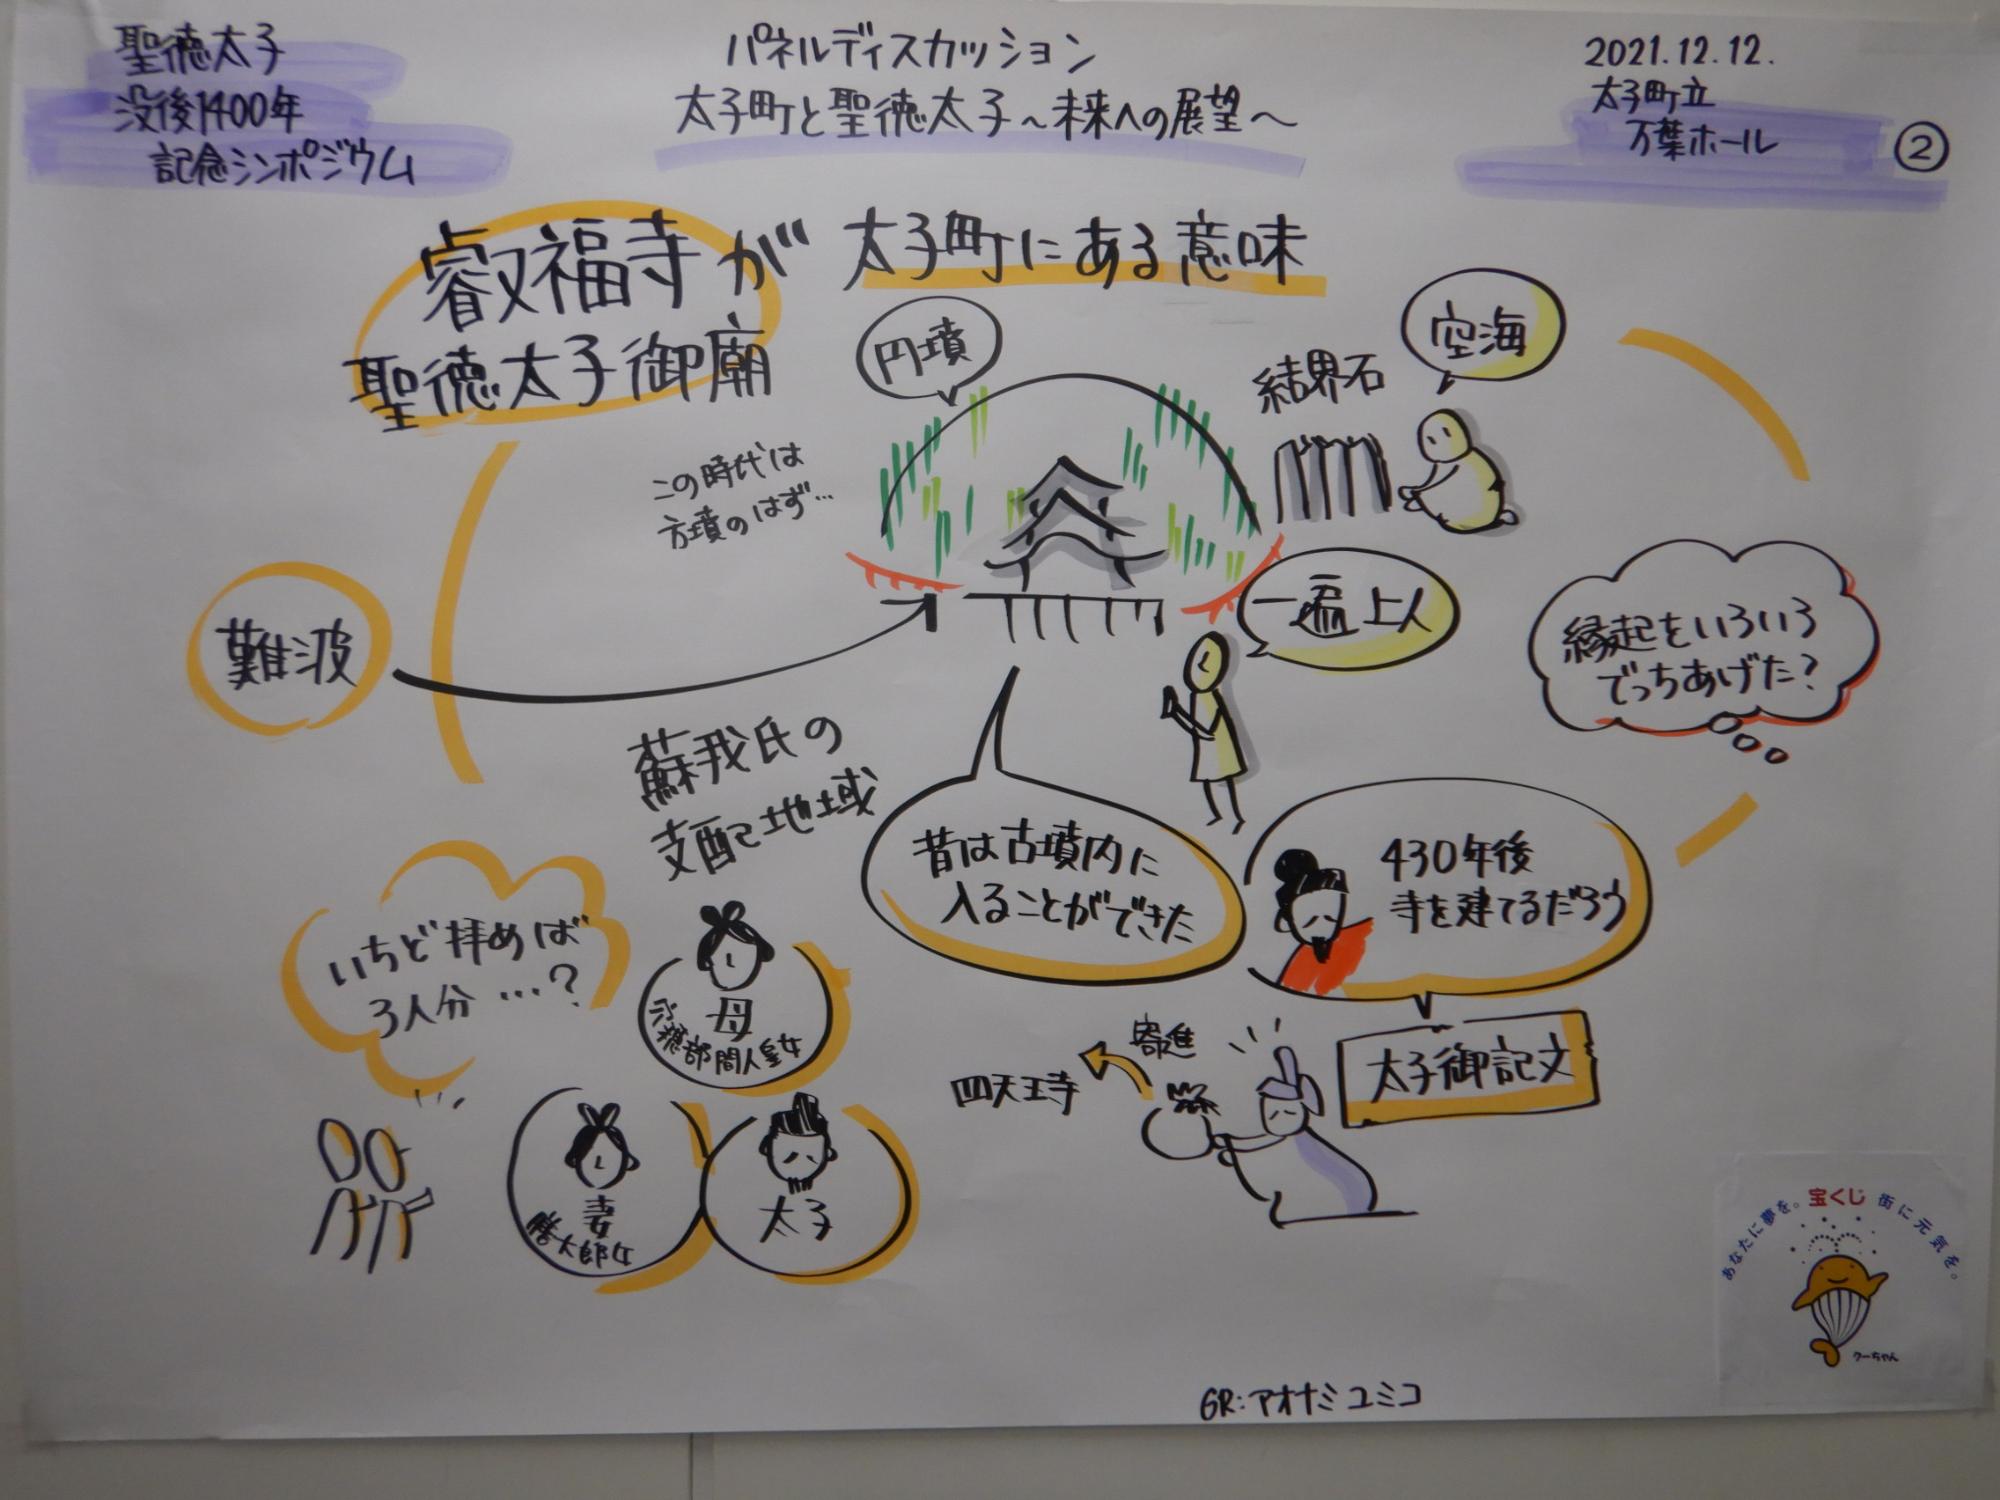 聖徳太子
没後1400年
記念シンポジウム
パネルディスカッション
太子町と聖徳太子～未来への展望～
2021.12.12.
太子町立
万葉ホール
②
叡福寺が太子町にある意味
聖徳太子御廟
円墳
この時代は
方墳のはず…
結界石
空海
一遍上人
難波
蘇我氏の
支配地域
縁起をいろいろ
でっちあげた?
昔は古墳内に
入ることができた
430年後
寺を建てるだろう
太子御記文
寄進
四天王寺
いちど拝めば
3人分…?
母
穴穂部間人皇女
妻
膳大郎女
太子
あなたに夢を。宝くじ 街に元気を。
クーちゃん
GR:アオナミユミコ